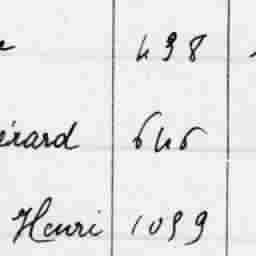 e 498
érard 646
Henri 1099